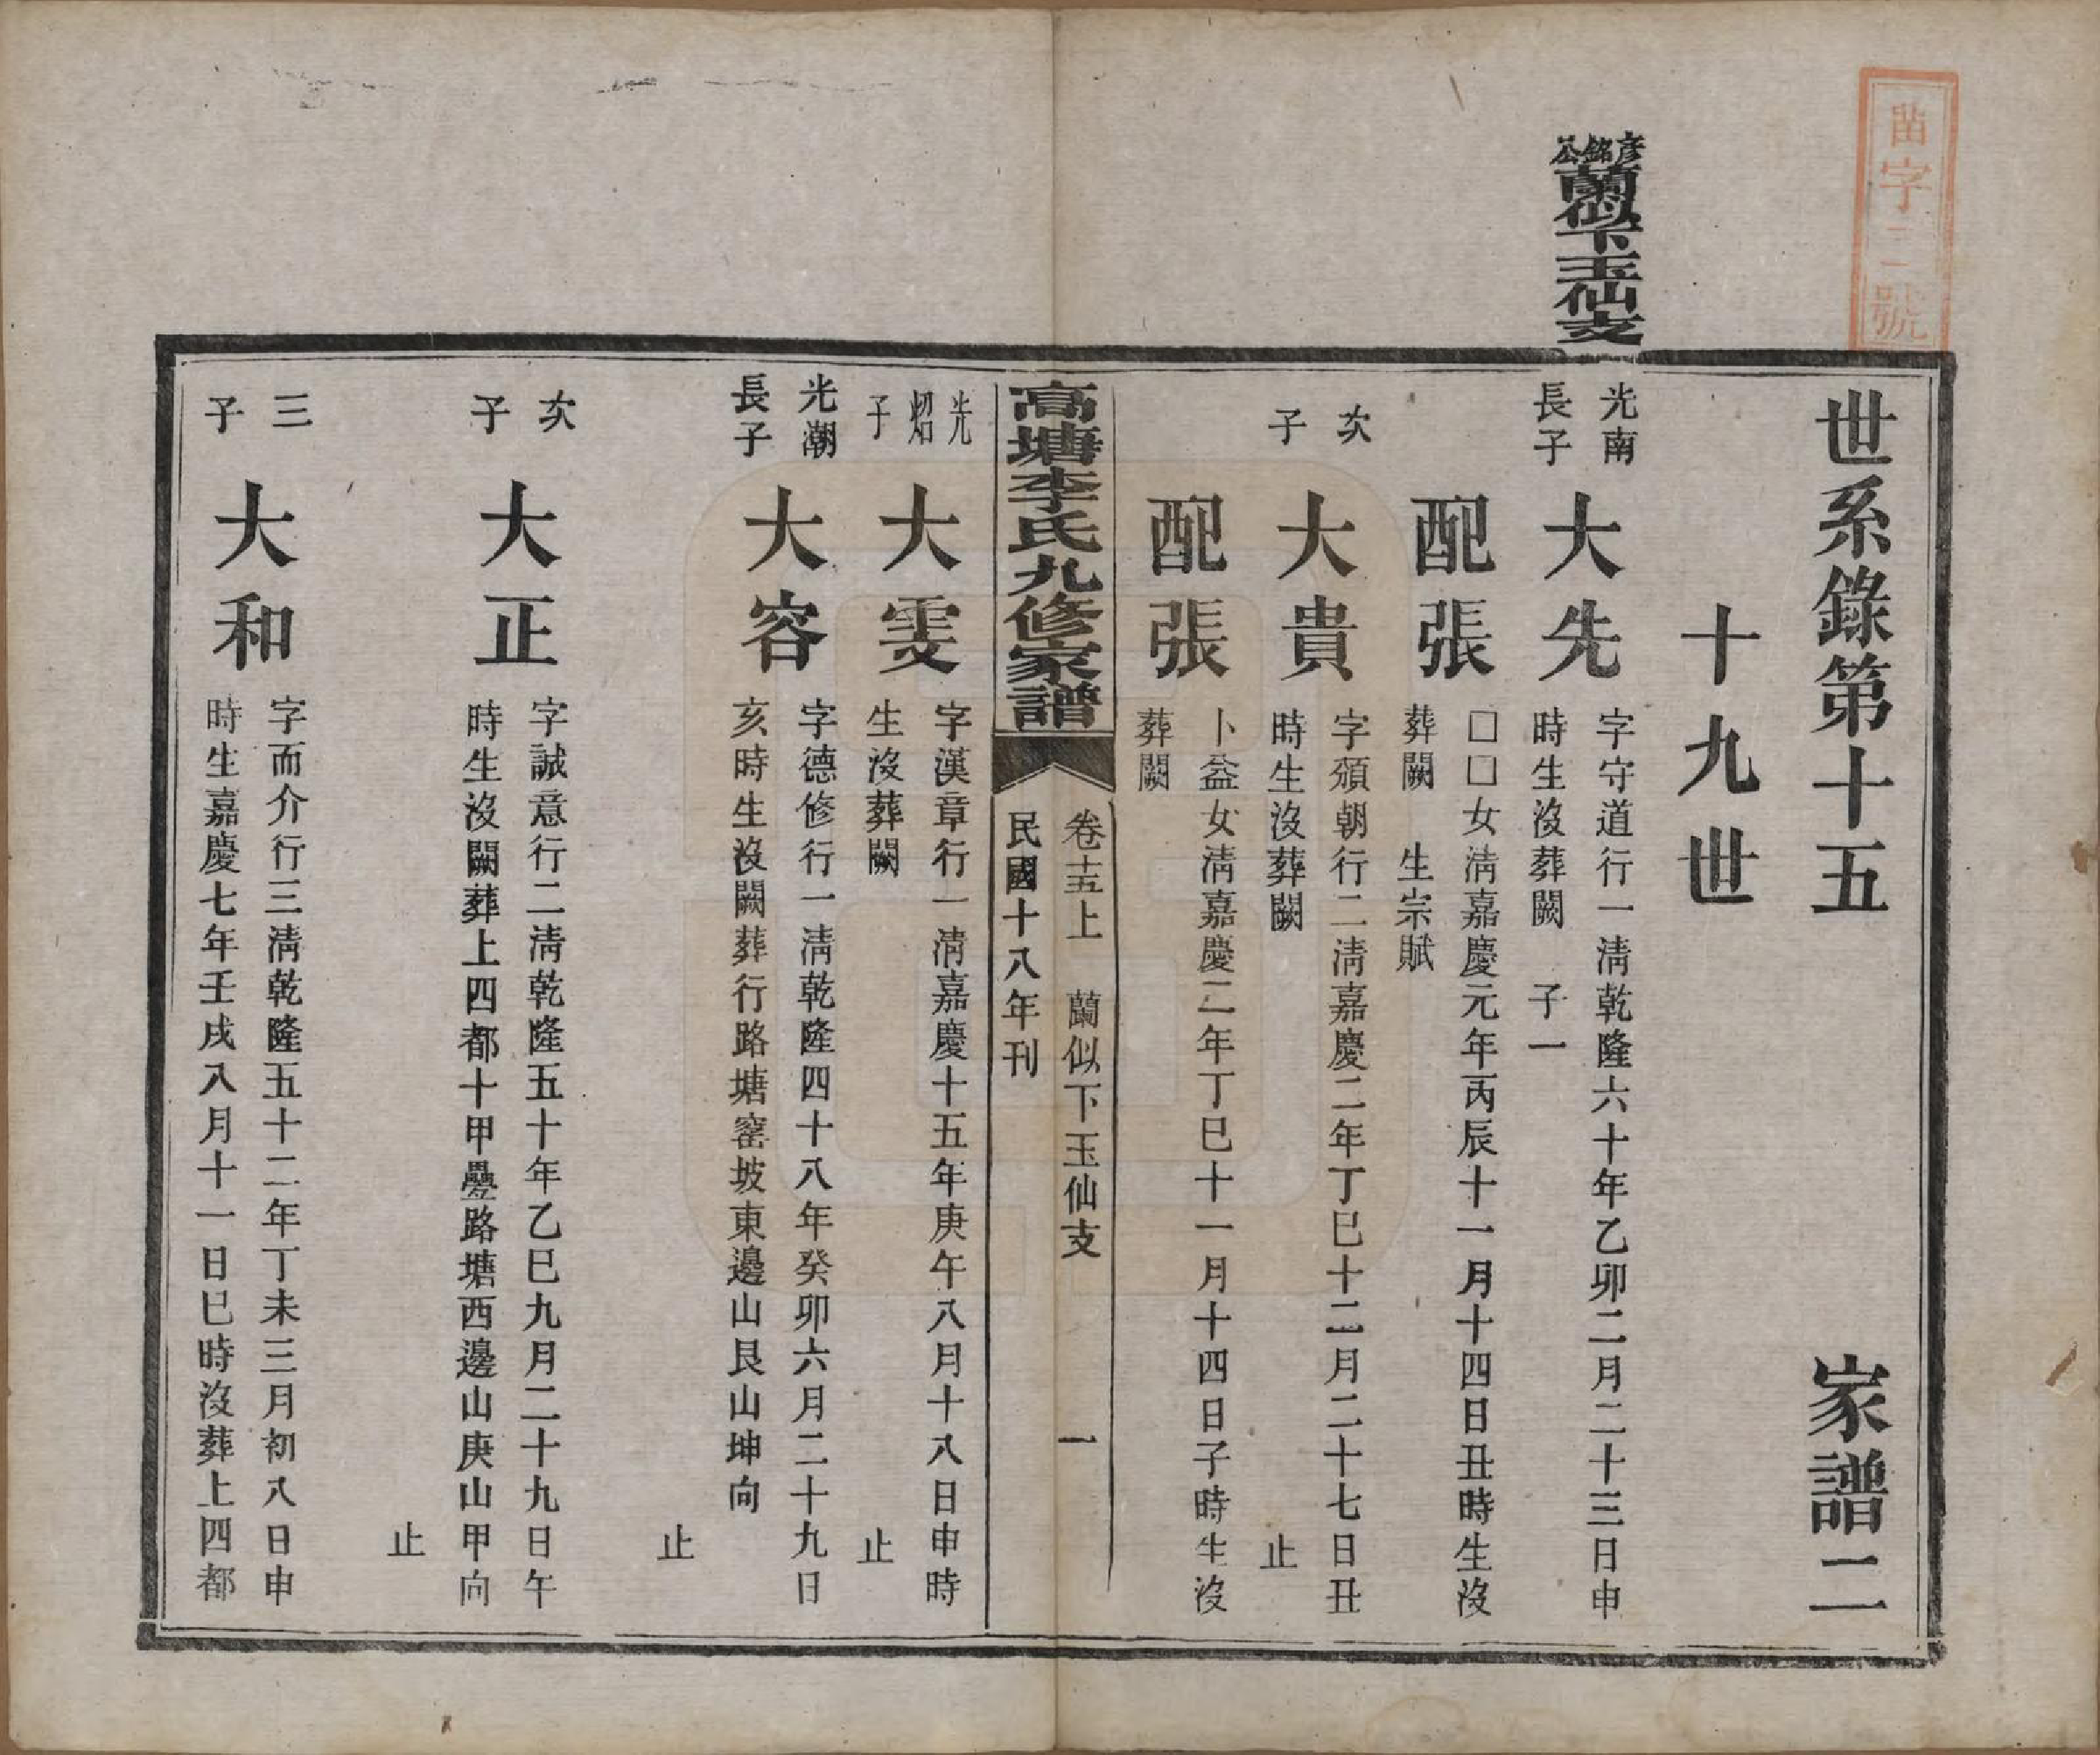 苗字二號
彥銘公
蘭似下玉仙支
世系錄第十五 家譜二
十九世
光南長子
大先
字守道行一清乾隆六十年乙卯二月二十三日申
時生沒葬闕 子一
配張
□□女清嘉慶元年丙辰十一月十四日丑時生沒
葬闕 生宗賦
次子
大貴
字頒朝行二清嘉慶二年丁巳十二月二十七日丑
時生沒葬闕 止
配張
卜益女清嘉慶二年丁巳十一月十四日子時生沒
葬闕
高塘李氏九修家譜
卷十五上 蘭似下玉仙支 一
民國十八年刊
光炤子
大雯
字漢章行一清嘉慶十五年庚午八月十八日申時
生沒葬闕 止
光潮長子
大容
字德修行一清乾隆四十八年癸卯六月二十九日
亥時生沒闕葬行路塘窰坡東邊山艮山坤向
止
次子
大正
字誠意行二清乾隆五十年乙巳九月二十九日午
時生沒闕葬上四都十甲疊路塘西邊山庚山甲向
止
三子
大和
字而介行三清乾隆五十二年丁未三月初八日申
時生嘉慶七年壬戌八月十一日巳時沒葬上四都